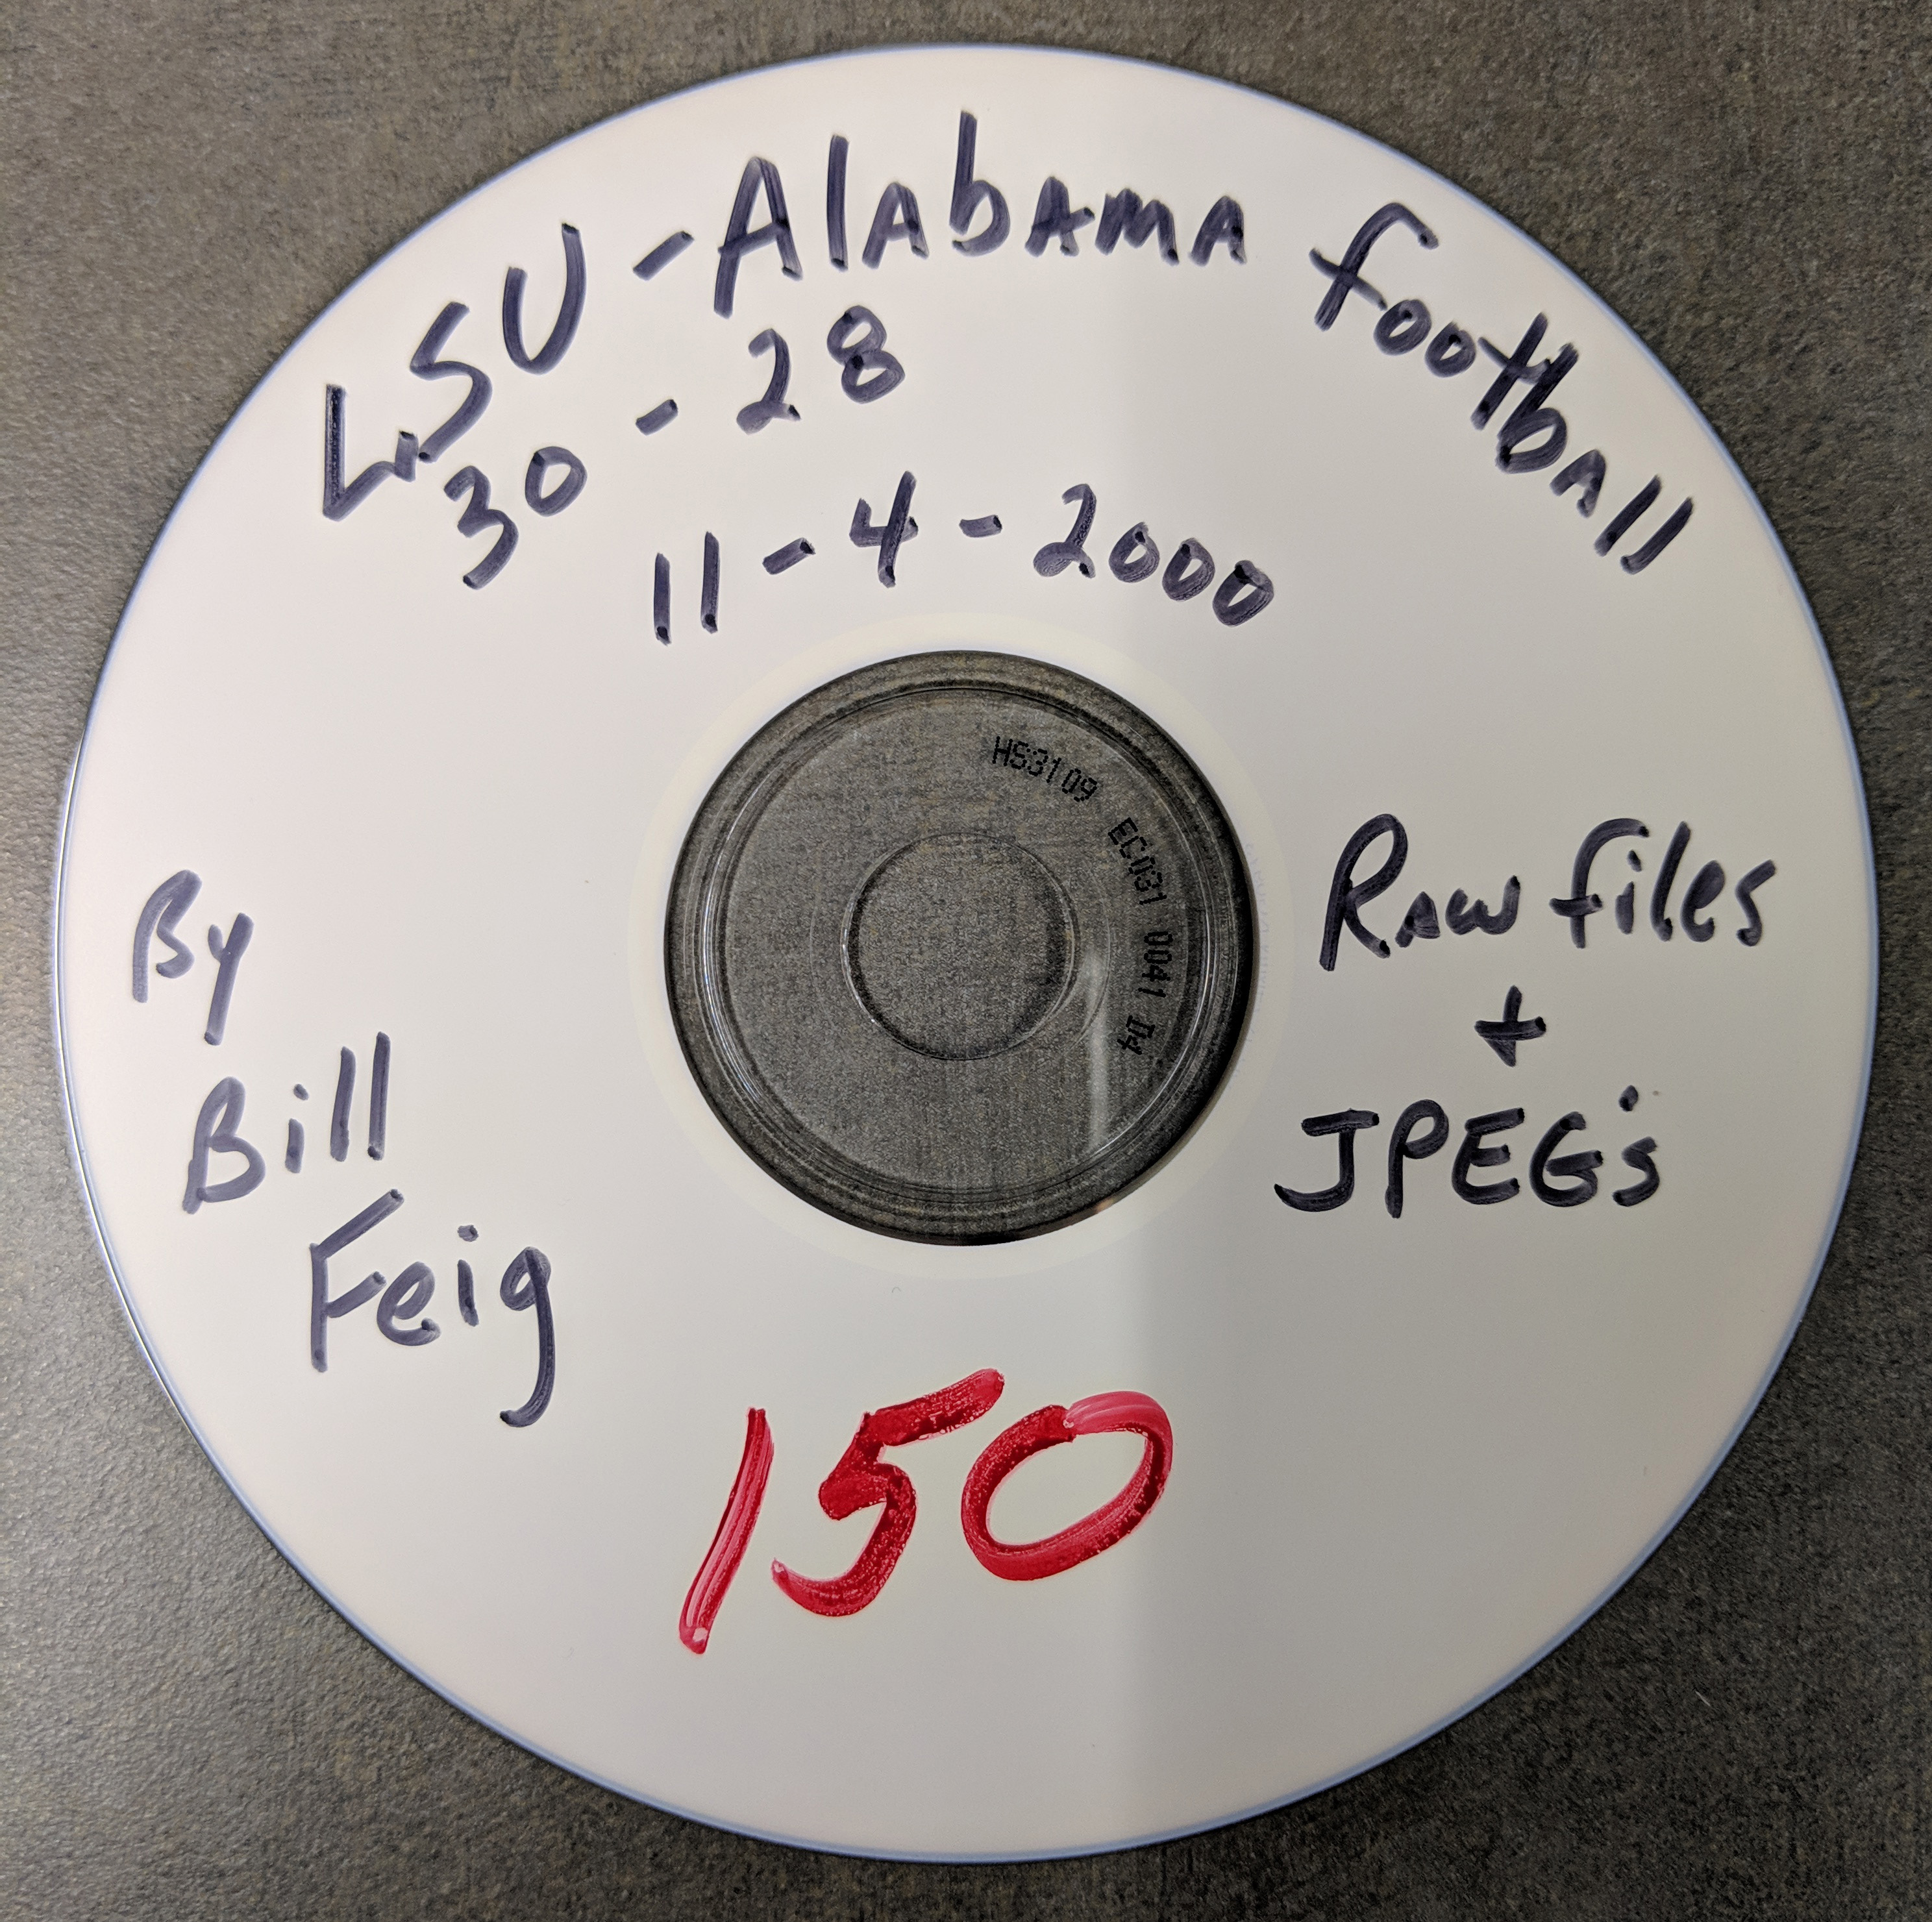 LSU - Alabama football
30 - 28
11 - 4 - 2000
HS3109 EC031 0041
By
Bill
Feig
Raw files
+
JPEG's
150